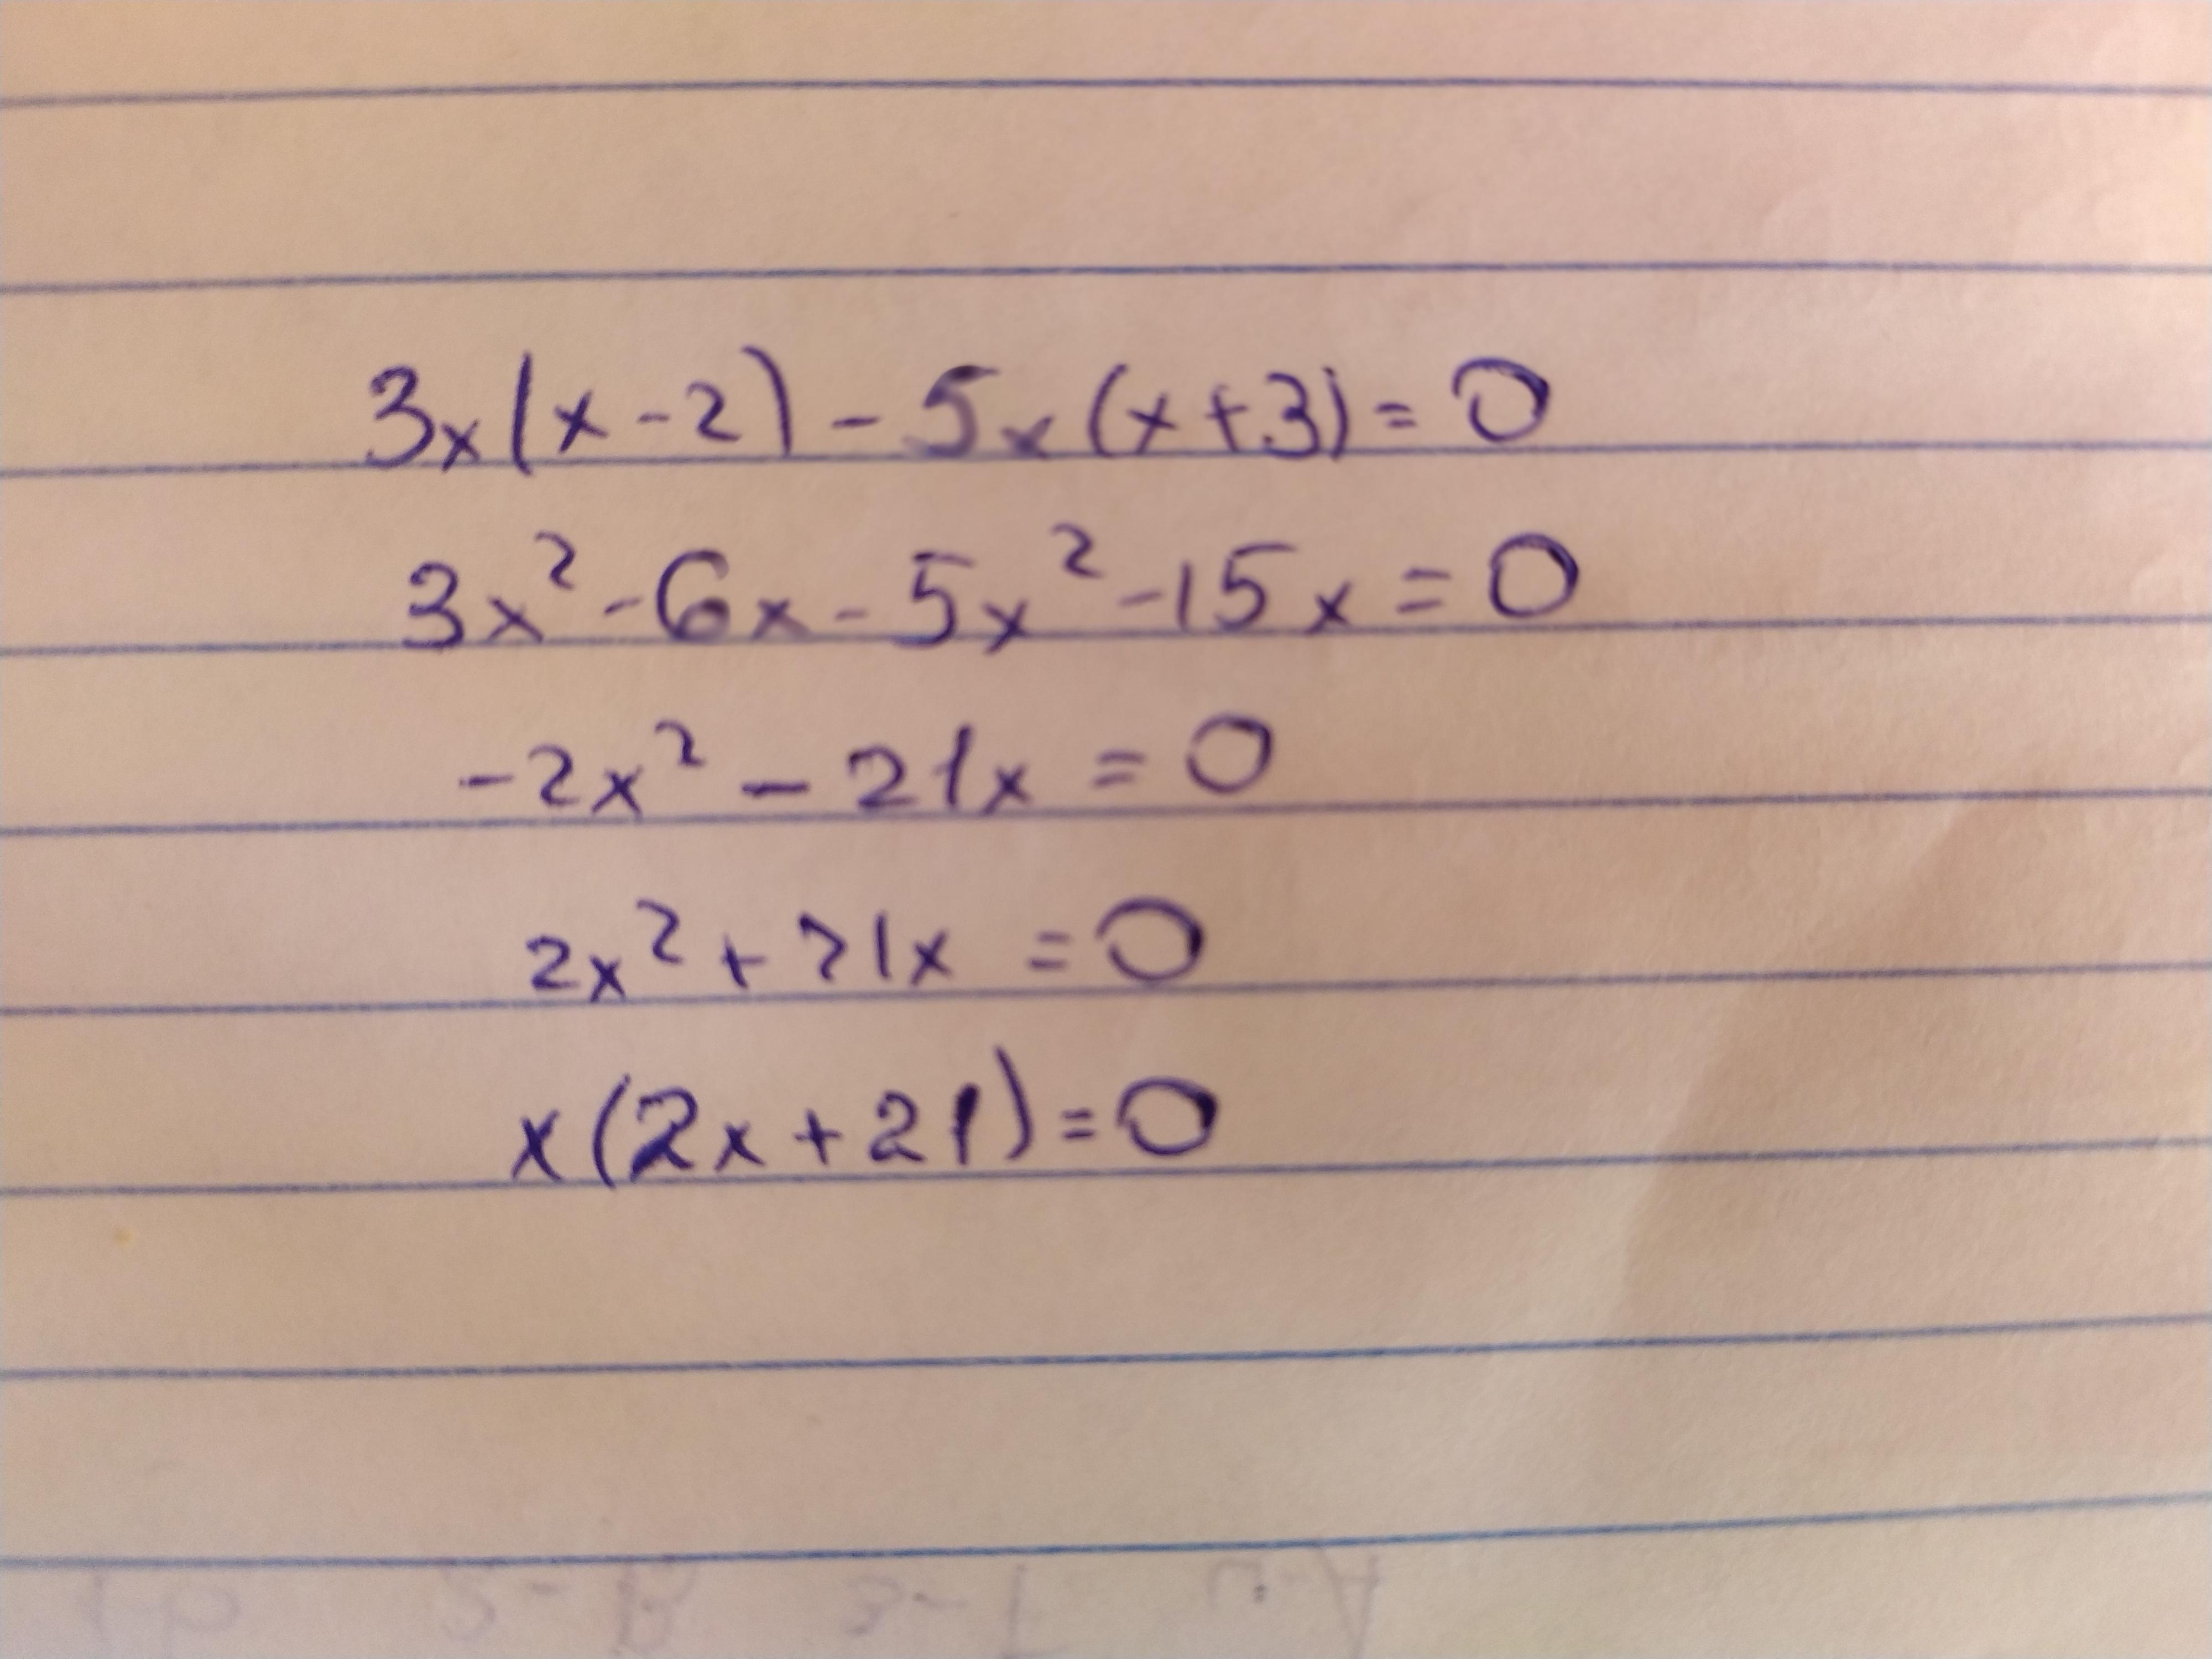 3x(x-2)-5x(x+3)=0
3x²-6x-5x²-15x=0
-2x²-21x=0
2x²+21x=0
x(2x+21)=0